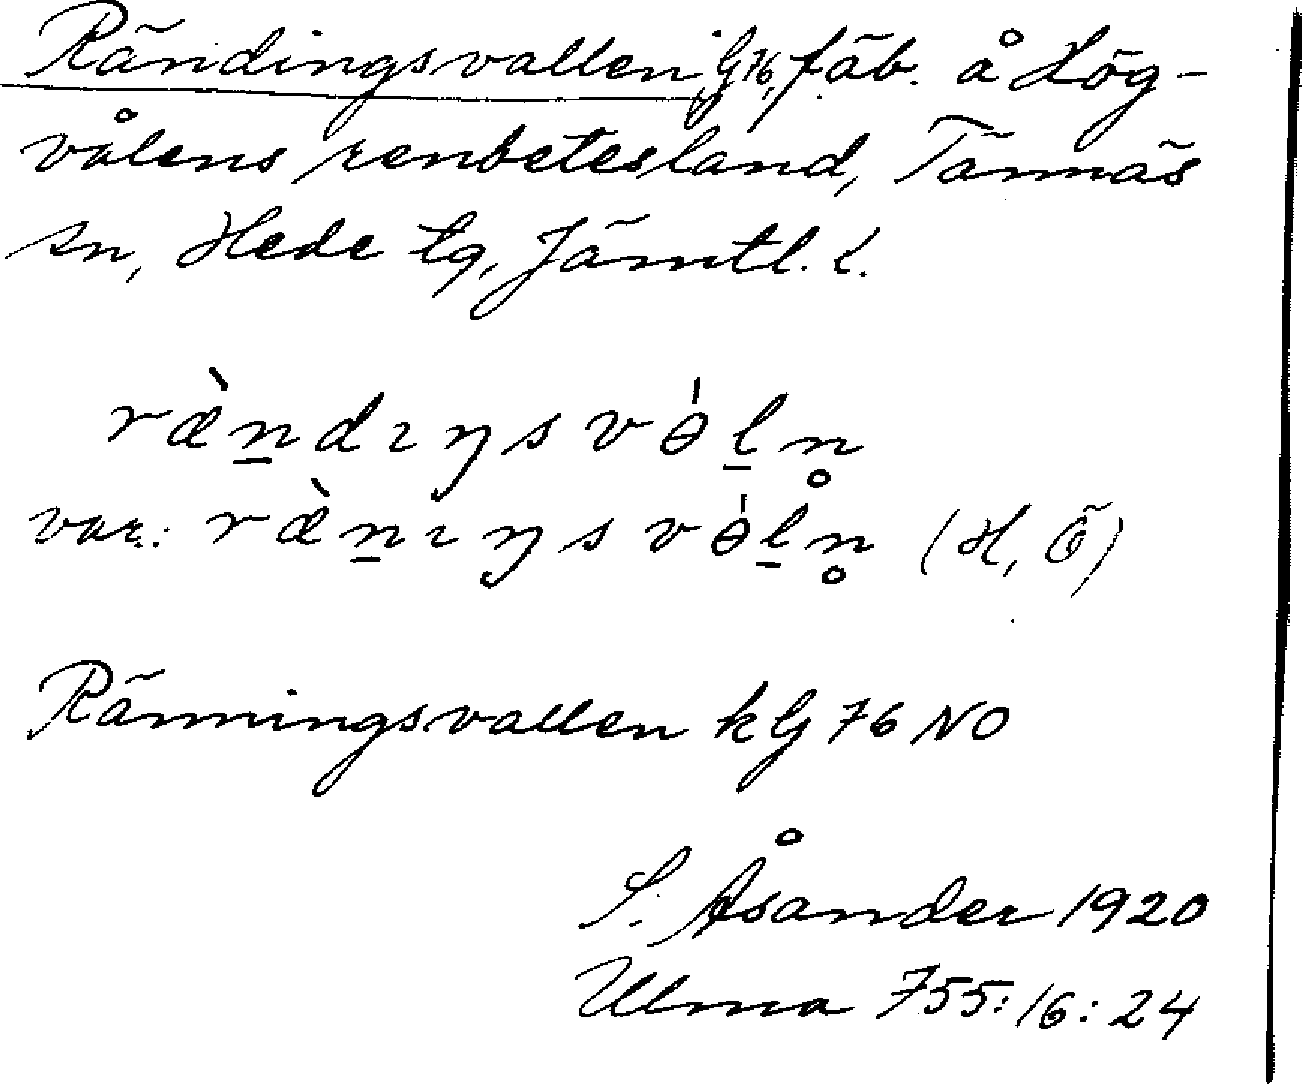 Rändingsvallen, G76, fäb. å Hög-
vålens renbetesland, Tännäs
sn, Hede tg, Jämtl. l.
ræ̀n̲dıŋsvə́l̲n̥
var.: ræ̀n̲ıŋsvə́l̲n̥ (H, Ö)
Ränningsvallen k G 76 NO
S. Åsander 1920
Ulma 755:16:24